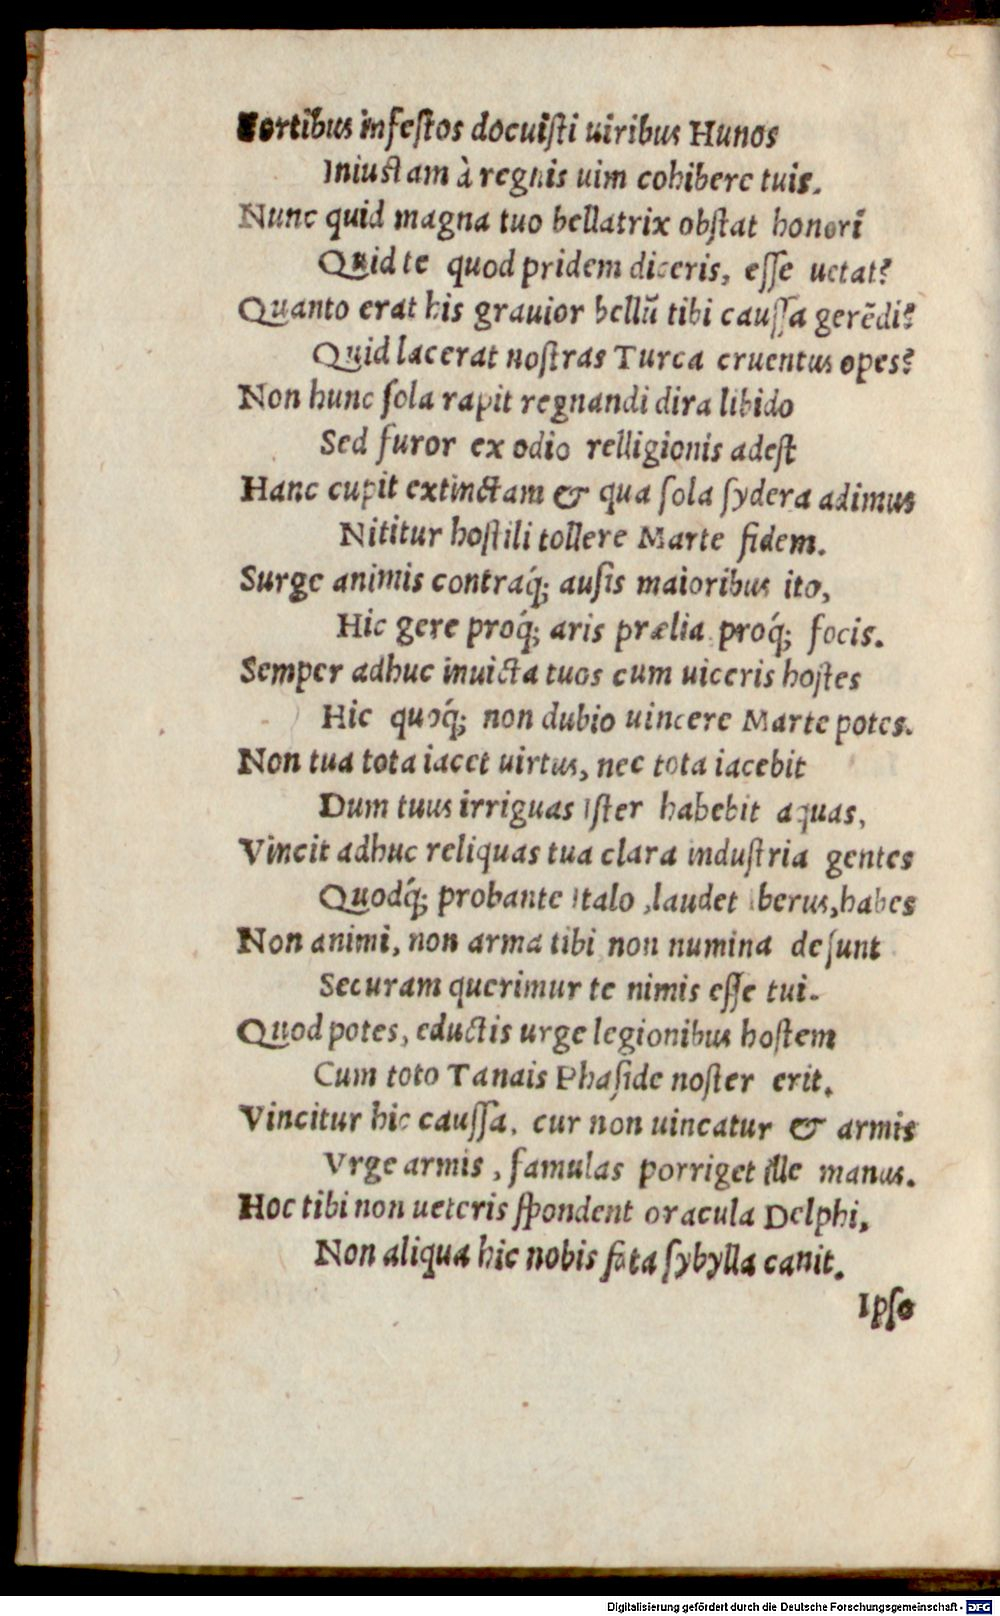 Fortibus infestos docuisti uiribus Hunos
Iniustam à regnis uim cohibere tuis.
Nunc quid magna tuo bellatrix obstat honori
Quid te quod pridem diceris, esse uetat?
Quanto erat his grauior bellũ tibi caussa gerẽdi?
Quid lacerat nostras Turca cruentus opes?
Non hunc sola rapit regnandi dira libido
Sed furor ex odio relligionis adest
Hanc cupit extinctam & qua sola sydera adimus
Nititur hostili tollere Marte fidem.
Surge animis contraq́; ausis maioribus ito,
Hic gere proq́; aris prælia proq́; focis.
Semper adhuc inuicta tuos cum uiceris hostes
Hic quoq́; non dubio uincere Marte potes.
Non tua tota iacet uirtus, nec tota iacebit
Dum tuus irriguas Ister habebit aquas,
Vincit adhuc reliquas tua clara industria gentes
Quodq́; probante Italo, laudet Iberus, habes
Non animi, non arma tibi non numina desunt
Securam querimur te nimis esse tui.
Quod potes, eductis urge legionibus hostem
Cum toto Tanais Phaside noster erit.
Vincitur hic caussa, cur non uincatur & armis
Vrge armis, famulas porriget ille manus.
Hoc tibi non ueteris spondent oracula Delphi,
Non aliqua hic nobis fata sybylla canit.
Ipso
Digitalisierung gefördert durch die Deutsche Forschungsgemeinschaft - DFG